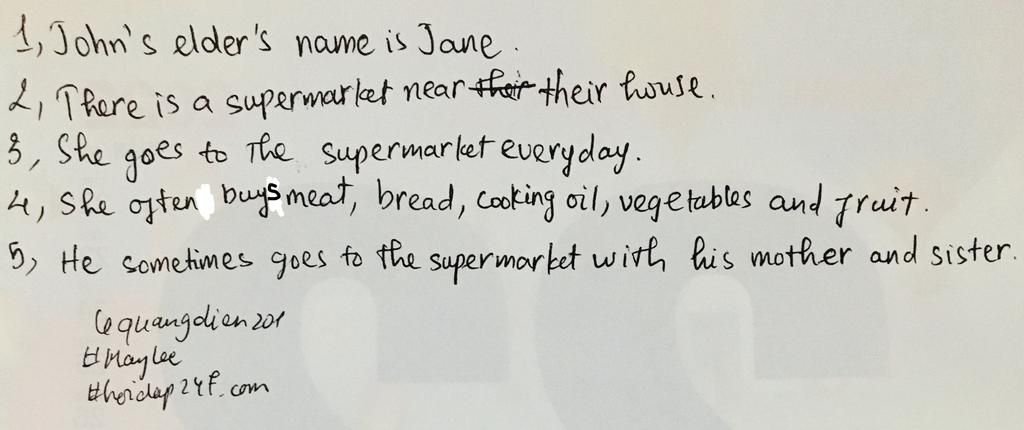 1, John's elder's name is Jane.
2, There is a supermarket near their their house.
3, She goes to The supermarket everyday.
4, She often buys meat, bread, cooking oil, vegetables and fruit.
5, He sometimes goes to the supermarket with his mother and sister.
lequangdien201
#MayLee
#hoidap247.com